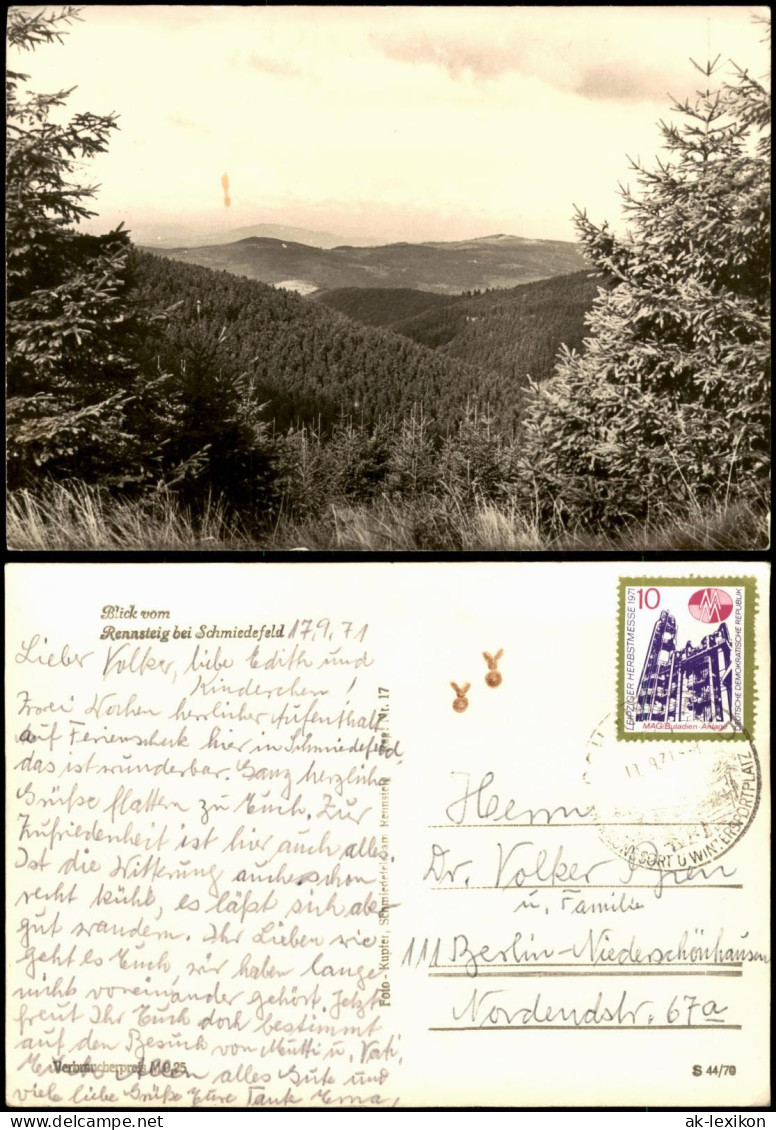 Blick vom
Rennsteig bei Schmiedefeld
17.9.71
Lieber Volker, liebe Edith und
Kinderchen!
Zwei Wochen herrlicher Aufenthalt
auf Ferienscheck hier in Schmiedefeld,
das ist wunderbar. Ganz herzliche
Grüße flattern zu Euch. Zur
Zufriedenheit ist hier auch alles.
Ist die Witterung auch schon
recht kühl, es läßt sich aber
gut wandern. Ihr Lieben wie
geht es Euch, wir haben lange
nichts voneinander gehört. Jetzt
freut Ihr Euch doch bestimmt
auf den Besuch von Mutti u. Vati.
Euch allen alles Gute und
viele liebe Grüße Eure Tante Erna.
Verbraucherpreis M 0,25
Foto-Kupfer, Schmiedefeld am Rennsteig Nr. 17
LEIPZIGER HERBSTMESSE 1971
10
DEUTSCHE DEMOKRATISCHE REPUBLIK
MAG-Butadien-Anlage
U WINTERSPORTPLATZ
Herrn
Dr. Volker
u. Familie
111 Berlin-Niederschönhausen
Nordendstr. 67a
S 44/70
ak-lexikon